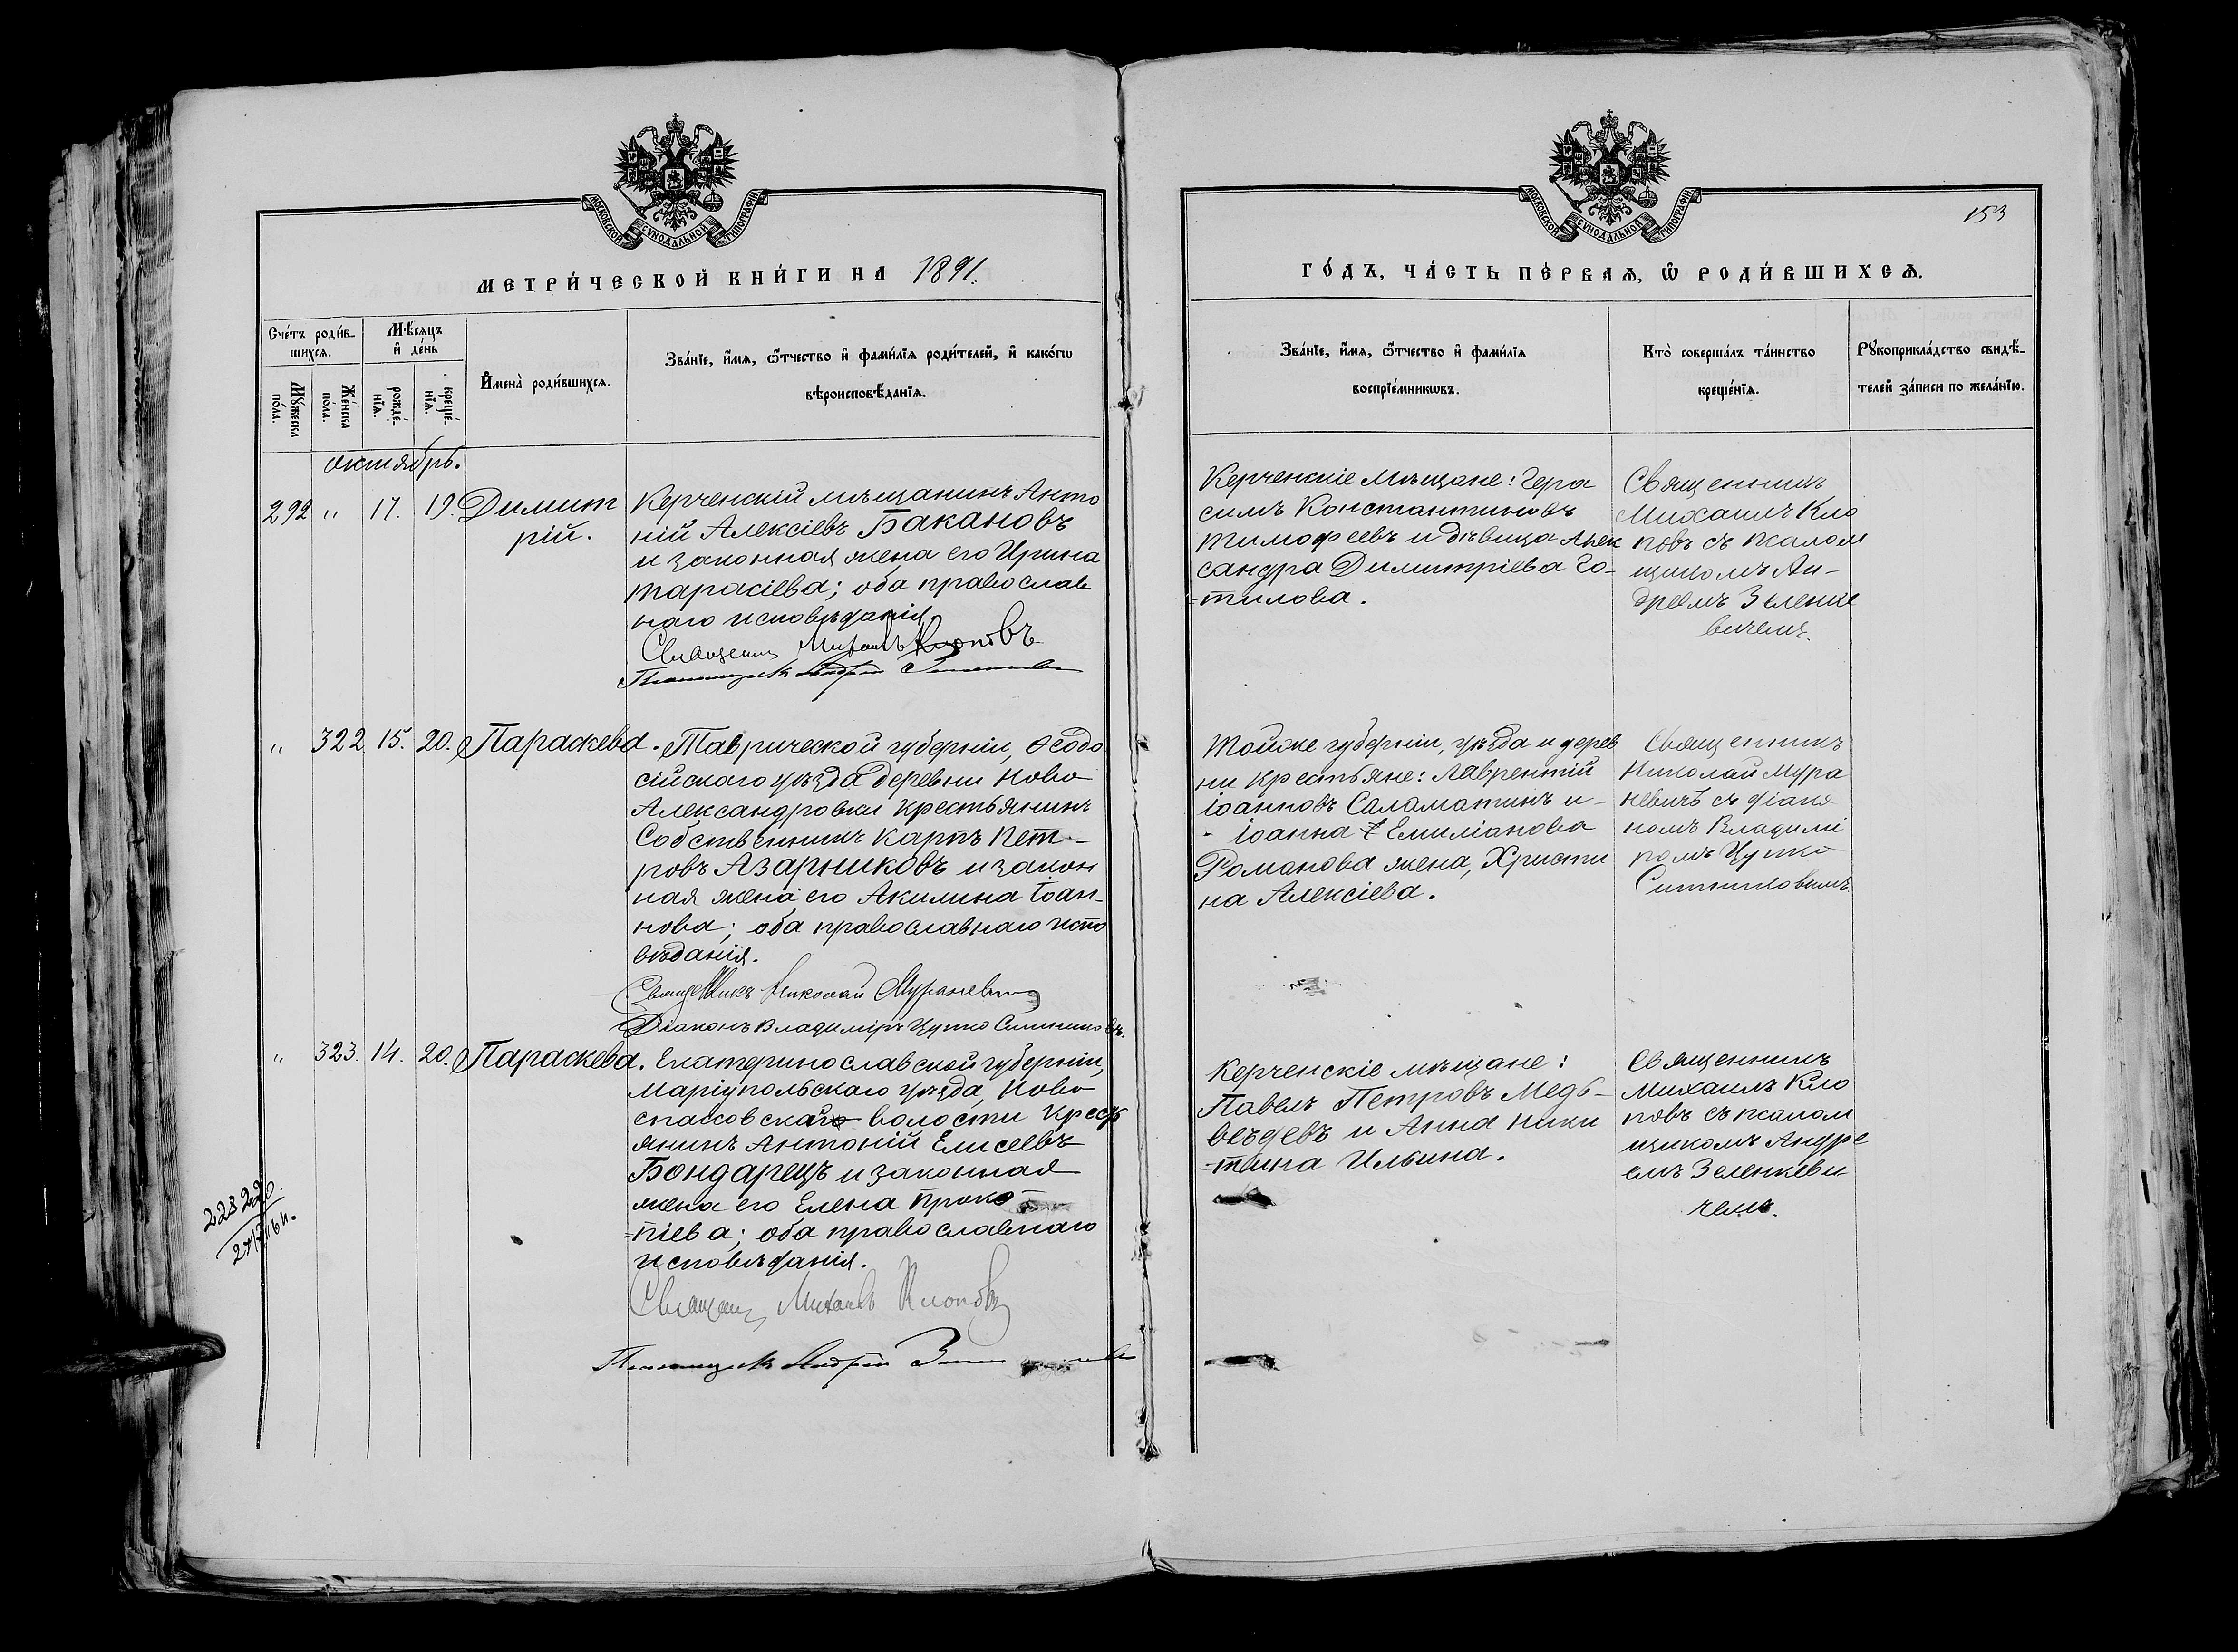 МОСКОВСКОЙ СУНОДАЛЬНОЙ ТИПОГРАФІИ
МЕТРИ́ЧЕСКОЙ КНИ́ГИ НА 1891.
Сче́тъ роди́в-
шихсѧ.
Мѣ́сѧцъ
и҆ де́нь
Мꙋ́жеска
по́ла.
Же́нска
по́ла.
рожде́-
нїѧ.
креще́-
нїѧ.
И҆мена̀ роди́вшихсѧ.
Зва́нїе, и҆́мѧ, ѻ҆́тчество и҆ фами́лїѧ роди́телей, и҆ како́гѡ
вѣроисповѣ́данїѧ.
октябрь.
292 " 17. 19. Димит
рій.
Керченскій мѣщанинъ Анто
ній Алексіевъ Бакановъ
и законная жена его Ирина
Тарасіева; оба православ
наго исповѣданія.
Священникъ Михаилъ Клоповъ
Псаломщикъ Андрей
" 322 15. 20. Параскева.
Таврической губерніи, Ѳеодо
сійскаго уѣзда деревни Ново
Александровки крестьянинъ
Собственникъ Карпъ Пет-
ровъ Азарниковъ и закон
ная жена его Акилина Іоан-
нова; оба православнаго испо
вѣданія.
Священникъ Николай Мураневичъ
Діаконъ Владиміръ Цупко Ситниковъ.
" 323. 14. 20. Параскева.
Екатеринославской губерніи,
Маріупольскаго уѣзда, Ново
спасовской волости крестъ
янинъ Антоній Елисеевъ
Бондарецъ и законная
жена его Елена Проко-
=піева; оба православнаго
исповѣданія.
Священникъ Михаилъ Клоповъ
Псаломщикъ Андрей
МОСКОВСКОЙ СУНОДАЛЬНОЙ ТИПОГРАФІИ
153
ГО́ДЪ, ЧА́СТЬ ПЕ́РВАѦ, Ѡ҆ РОДИ́ВШИХСѦ.
Зва́нїе, и҆́мѧ, ѻ҆́тчество и҆ фами́лїѧ
воспрїе́мникѡвъ.
Кто̀ соверша́лъ та́инство
креще́нїѧ.
Рꙋкоприкла́дство свидѣ́-
телей за́писи по жела́нїю.
Керченскіе мѣщане: Гера
симъ Константиновъ
Тимофеевъ и дѣвица Алек
сандра Димитріева Го-
=тилова.
Священникъ
Михаилъ Кло
повъ съ псалом
щикомъ Ан-
дреемъ Зеленке
вичемъ.
Тойже губерніи, уѣзда и дерев
ни крестьяне: Лаврентій
Іоанновъ Саламатинъ и
Іоанна Емиліанова
Романова жена, Христи
на Алексіева.
Священникъ
Николай Мура
невичъ съ діако
номъ Владимі
ромъ Цупко
Ситниковымъ
Керченскіе мѣщане:
Павелъ Петровъ Медъ-
вѣдевъ и Анна Ники
=тина Ильина.
Священникъ
Михаилъ Кло
повъ съ псалом
щикомъ Андре
емъ Зеленкеви
чемъ.